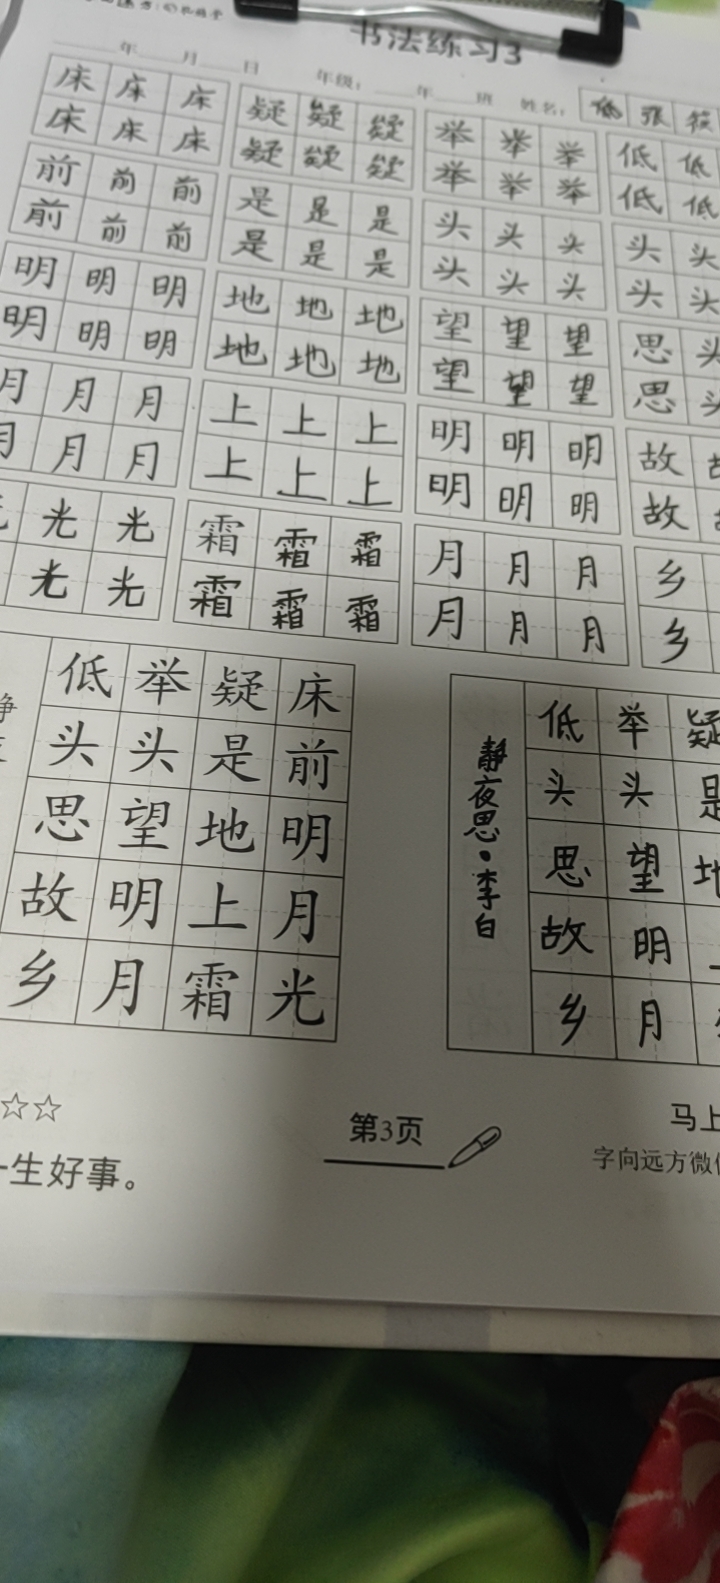 书法练习3
年 月 日 年级： 年 班 姓名：
床 床 床 疑 疑 疑 举 举 举 低 低
床 床 床 疑 疑 疑 举 举 举 低 低
前 前 前 是 是 是 头 头 头 头 头
前 前 前 是 是 是 头 头 头 头 头
明 明 明 地 地 地 望 望 望 思
明 明 明 地 地 地 望 望 望 思
月 月 月 上 上 上 明 明 明 故
月 月 月 上 上 上 明 明 明 故
光 光 霜 霜 霜 月 月 月 乡
光 光 霜 霜 霜 月 月 月 乡
低 举 疑 床
头 头 是 前
思 望 地 明
故 明 上 月
乡 月 霜 光
静夜思·李白
低 举 疑
头 头 是
思 望 地
故 明
乡 月
第3页
马上
一生好事。
字向远方微信